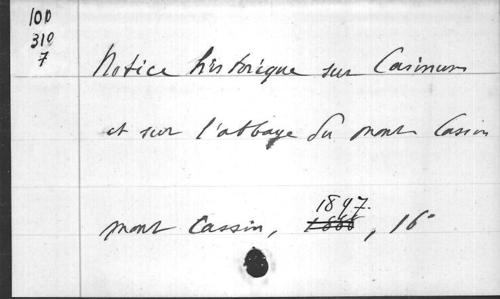 100
310
7
Notice historique sur Casinum
et sur l'abbaye du mont Cassin
1897.
mont Cassin, 1886, 16°